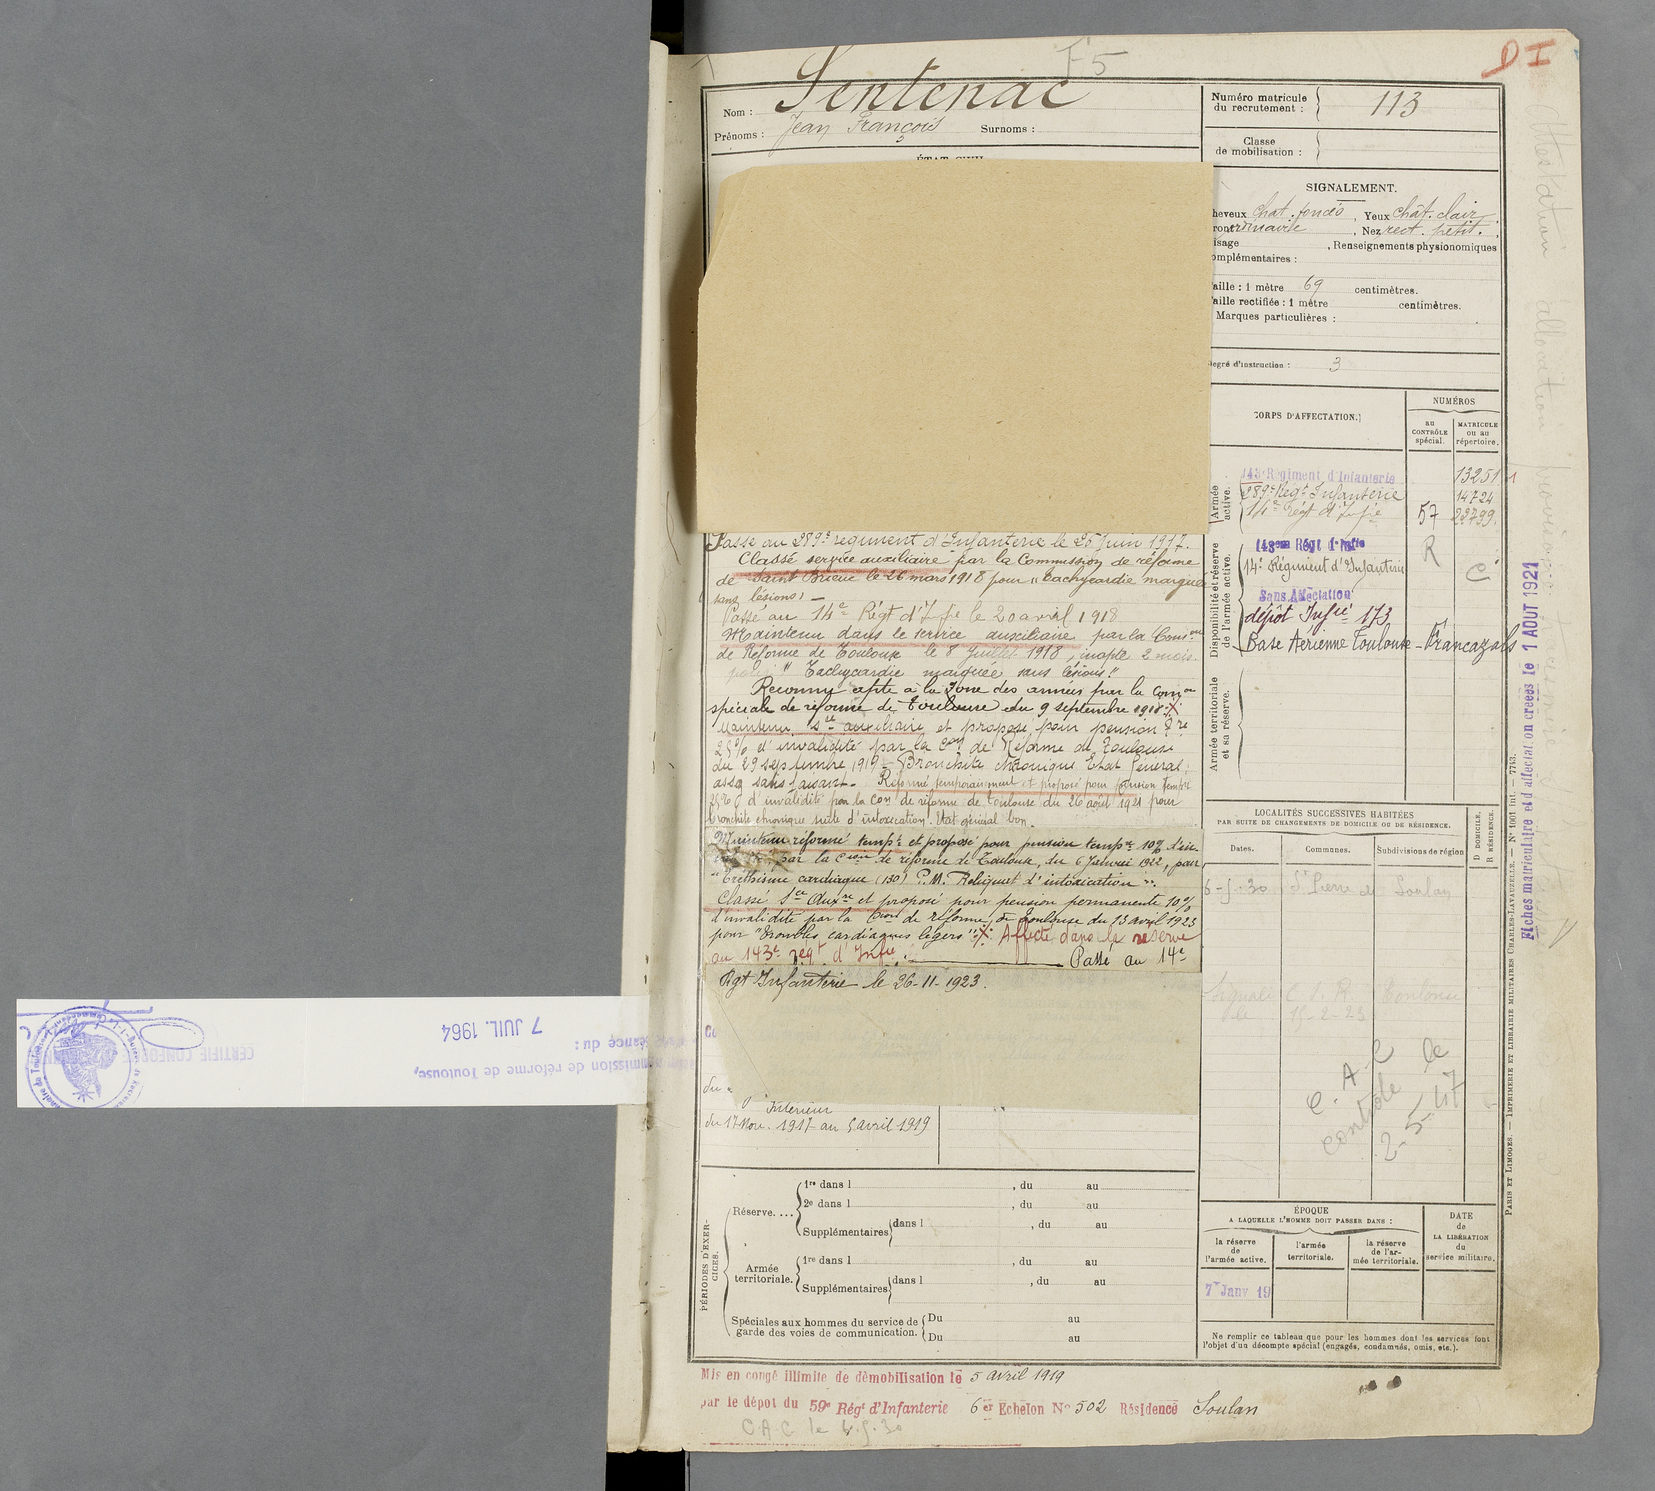 F5
DI
Nom : Sentenac
Prénoms : Jean François Surnoms :
Numéro matricule
du recrutement : 113
Classe
de mobilisation :
SIGNALEMENT.
heveux chat. foncés, Yeux chât. clair
ront ordinaire, Nez rect. petit.
isage , Renseignements physionomiques
omplémentaires :
aille : 1 mètre 69 centimètres.
aille rectifiée : 1 mètre centimètres.
Marques particulières :
egré d'instruction : 3
CORPS D'AFFECTATION.
NUMÉROS
AU
CONTRÔLE
spécial.
MATRICULE
OU AU
répertoire.
Armée
active.
143e Régiment d'Infanterie 13251
289e Régt Infanterie 14724
14e Régt d'Infie 57 22799
Disponibilité et réserve
de l'armée active.
143eme Régt d'Infie R
14e Régiment d'Infanterie C
Sans Affectation
dépôt Infie 173
Base Aérienne Toulouse - Francazals
Armée territoriale
et sa réserve.
Passé au 289e régiment d'Infanterie le 25 Juin 1917.
Classé service auxiliaire par la Commission de réforme
de Saint Brieuc le 26 mars 1918 pour "tachycardie marquée
sans lésions" —
Passé au 14e Régt d'Infie le 20 avril 1918
Maintenu dans le service auxiliaire par la Comon
de Réforme de Toulouse le 8 Juillet 1918, inapte 2 mois.
pour " Tachycardie marquée sans lésions."
Reconnu apte à la Zone des armées par la Comon
spéciale de réforme de Toulouse du 9 septembre 1918 X
Maintenu Sce auxiliaire et proposé pour pension
25% d'invalidité par la Con de Réforme de Toulouse
du 29 septembre 1919 - Bronchite chronique Etat Général
assez satisfaisant. Réformé temporairement et proposé pour pension tempre
25% d'invalidité par la Con de réforme de Toulouse du 26 août 1921 pour
bronchite chronique suite d'intoxication. Etat général bon.
Maintenu réformé tempre et proposé pour pension tempre 10% d'in-
par la Cion de réforme de Toulouse, du 6 Janvier 1922, pour
"Erethisme cardiaque (130) P.M. Reliquat d'intoxication".
Classé Sce Auxre et proposé pour pension permanente 10%
d'invalidité par la Cion de réforme de Toulouse du 13 avril 1923
pour "troubles cardiaques légers". X Affecté dans la réserve
au 143e regt d'Infie. Passé au 14e
Rgt Infanterie le 26-11-1923.
7 JUIL. 1964
séance du :
mmission de réforme de Toulouse,
CERTIFIÉ CONFOR
du
Intérieur
du 17 Nov. 1917 au 5 avril 1919
LOCALITÉS SUCCESSIVES HABITÉES
PAR SUITE DE CHANGEMENTS DE DOMICILE OU DE RÉSIDENCE.
Dates. Communes. Subdivisions de région
D DOMICILE.
R RÉSIDENCE.
6-5-30 St Pierre de Soulan
Signalé C.S.R. Toulouse
le 15-2-23
C.A.C le
contrôle
2-5-47
PÉRIODES D'EXER-
CICES.
Réserve.... 1re dans l , du au
2e dans l , du au
Supplémentaires dans l , du au
Armée
territoriale. 1re dans l , du au
Supplémentaires dans l , du au
Spéciales aux hommes du service de
garde des voies de communication. Du au
Du au
ÉPOQUE
A LAQUELLE L'HOMME DOIT PASSER DANS :
la réserve
de
l'armée active.
l'armée
territoriale.
la réserve
de l'ar-
mée territoriale.
DATE
de
LA LIBÉRATION
du
service militaire.
7 Janv 19
Ne remplir ce tableau que pour les hommes dont les services font
l'objet d'un décompte spécial (engagés, condamnés, omis, etc.).
Mis en congé illimité de démobilisation le 5 avril 1919
par le dépôt du 59e Régt d'Infanterie 6er Echelon No 502 Résidence Soulan
C.A.C le 6.5.30
Fiches matriculaire et d'affectation créées le 1 AOUT 1921
PARIS ET LIMOGES. — IMPRIMERIE ET LIBRAIRIE MILITAIRES CHARLES-LAVAUZELLE. — No 1001 int. — 7743.